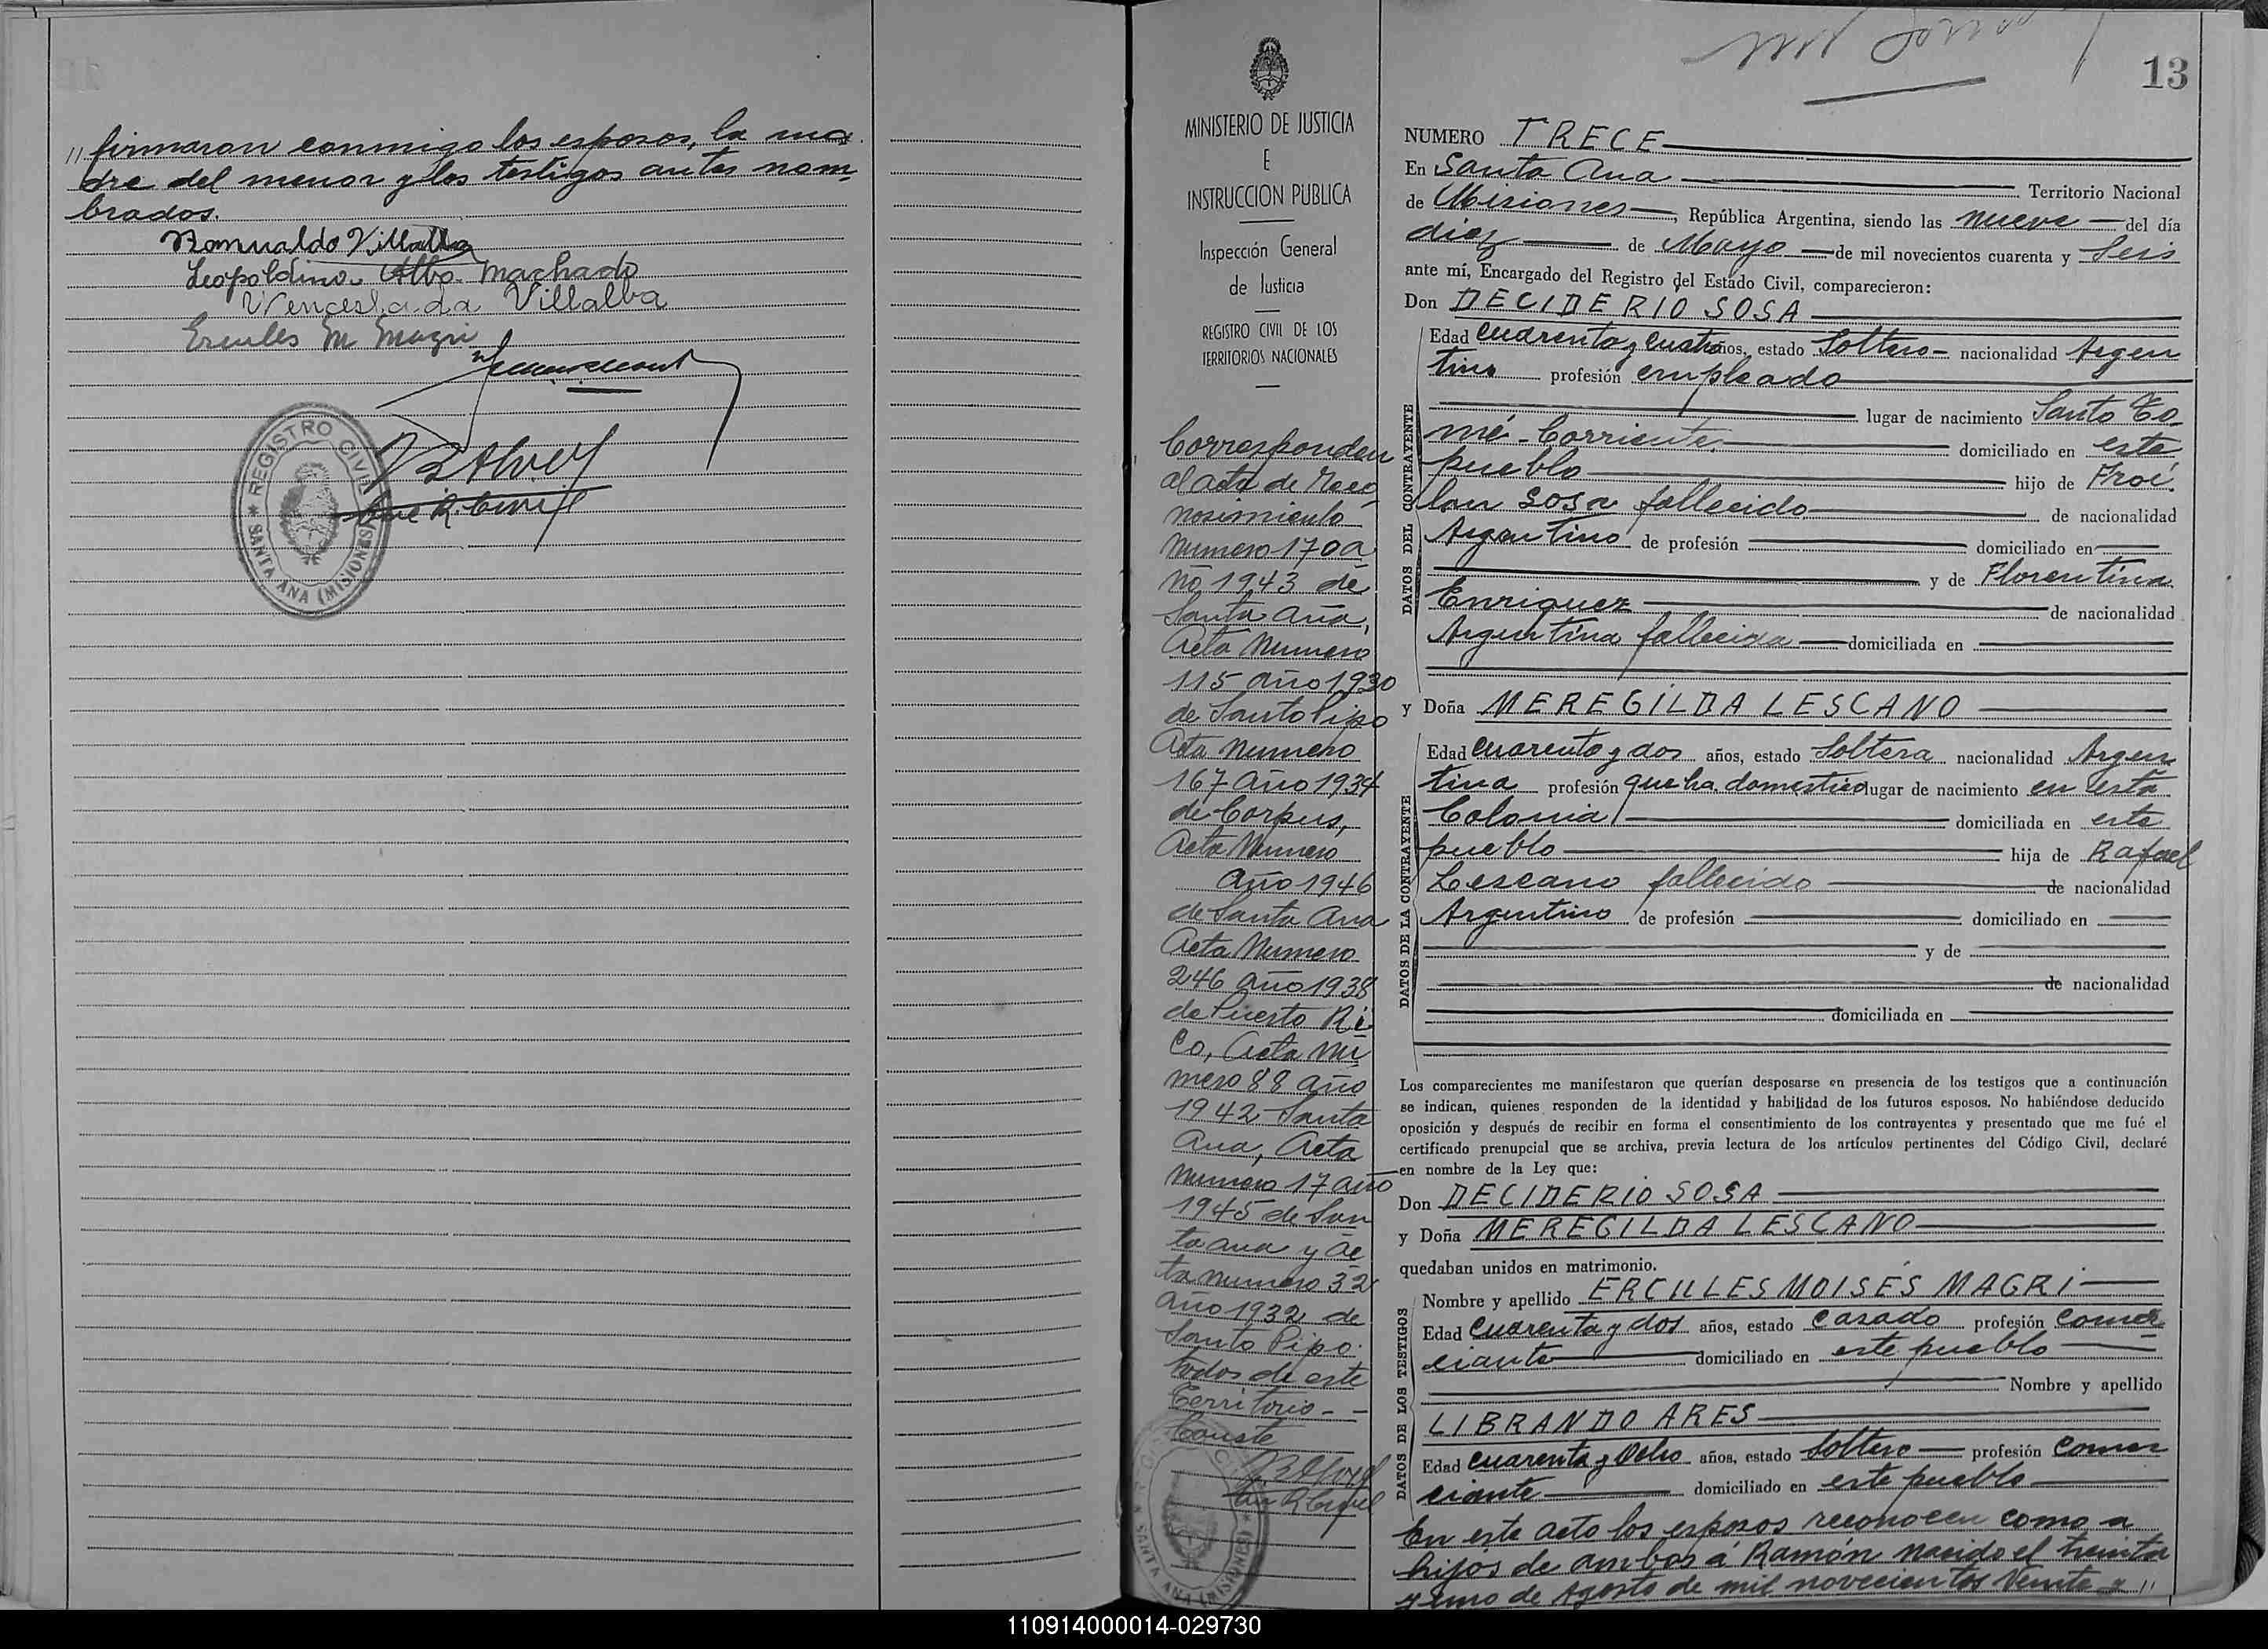 " firmaron conmigo los esposos, la ma
dre del menor y los testigos antes nom
brados.
Romualdo Villalba
Leopoldino Albo. Machado
Wenceslada Villalba
Ercules M Magri
REGISTRO CIVIL
* SANTA ANA (MISIONES)
MINISTERIO DE JUSTICIA
E
INSTRUCCION PUBLICA
Inspección General
de Justicia
REGISTRO CIVIL DE LOS
TERRITORIOS NACIONALES
Corresponden
al acta de Reco
nosimiento
numero 170 a
ño 1943 de
Santa Ana,
Acta Numero
115 año 1930
de Santo Pipo
Acta Numero
167 año 1934
de Corpus,
Acta Numero
año 1946
de Santa Ana
Acta Numero
246 año 1938
de Puerto Ri
co, Acta Nu
mero 88 año
1942 Santa
Ana, Acta
numero 17 año
1945 de San
ta ana y Ac
ta numero 32
año 1932 de
Santo Pipo.
todos de este
Territorio - -
Conste
13
NUMERO TRECE
En Santa Ana Territorio Nacional
de Misiones, República Argentina, siendo las nueve del día
diez de Mayo de mil novecientos cuarenta y Seis
ante mí, Encargado del Registro del Estado Civil, comparecieron:
Don DECIDERIO SOSA
DATOS DEL CONTRAYENTE
Edad cuarenta y cuatro años, estado Soltero - nacionalidad Argen
tino profesión empleado
lugar de nacimiento Santo To
mé - Corrientes domiciliado en este
pueblo hijo de Froi
lan Sosa fallecido de nacionalidad
Argentino de profesión domiciliado en
y de Florentina
Enriquez de nacionalidad
Argentina fallecida domiciliada en
y Doña MEREGILDA LESCANO
DATOS DE LA CONTRAYENTE
Edad cuarenta y dos años, estado Soltera nacionalidad Argen
tina profesión queha. domestico lugar de nacimiento en esta
Colonia domiciliada en este
pueblo hija de Rafael
Lescano fallecido de nacionalidad
Argentino de profesión domiciliado en
y de
de nacionalidad
domiciliada en
Los comparecientes me manifestaron que querían desposarse en presencia de los testigos que a continuación
se indican, quienes responden de la identidad y habilidad de los futuros esposos. No habiéndose deducido
oposición y después de recibir en forma el consentimiento de los contrayentes y presentado que me fué el
certificado prenupcial que se archiva, previa lectura de los artículos pertinentes del Código Civil, declaré
en nombre de la Ley que:
Don DECIDERIO SOSA
y Doña MEREGILDA LESCANO
quedaban unidos en matrimonio.
DATOS DE LOS TESTIGOS
Nombre y apellido ERCULES MOISÉS MAGRI
Edad cuarenta y dos años, estado casado profesión comer
ciante domiciliado en este pueblo
Nombre y apellido
LIBRANDO ARES
Edad cuarenta y Ocho años, estado Soltero profesión comer
ciante domiciliado en este pueblo
En este acto los esposos reconocen como a
hijos de ambos á Ramón nacido el treinta
y uno de Agosto de mil novecientos Veinte y "
110914000014-029730